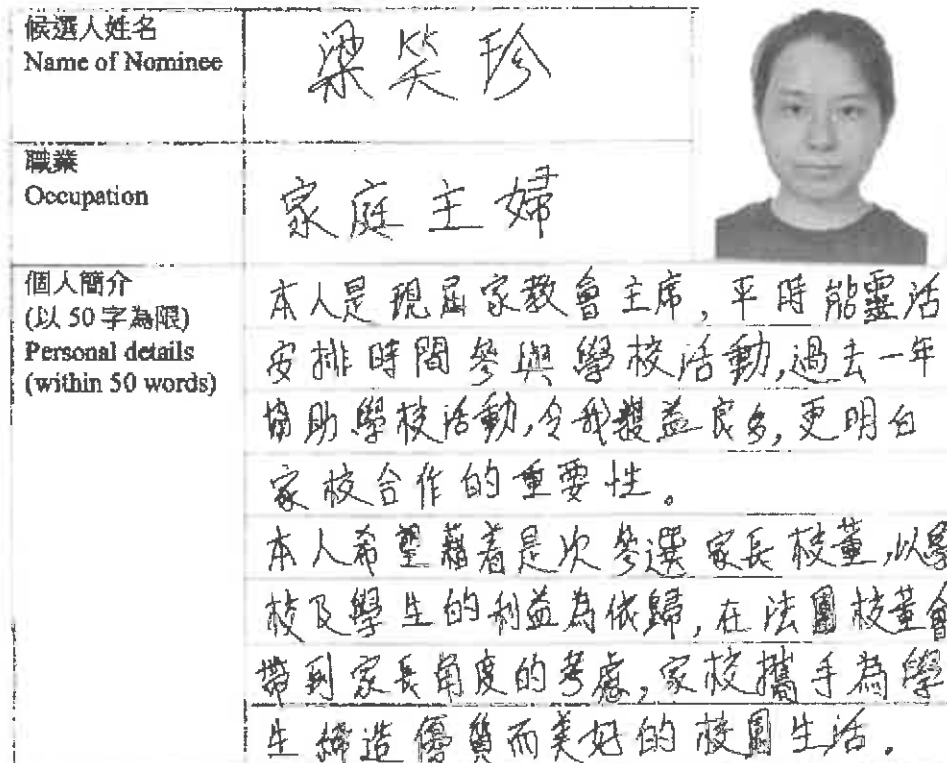 候選人姓名
Name of Nominee
梁笑珍
職業
Occupation
家庭主婦
個人簡介
(以 50 字為限)
Personal details
(within 50 words)
本人是現屆家教會主席,平時能靈活
安排時間參與學校活動,過去一年
協助學校活動,令我獲益良多,更明白
家校合作的重要性。
本人希望藉着是次參選家長校董,以學
校及學生的利益為依歸,在法團校董會
帶到家長角度的考慮,家校攜手為學
生締造優質而美好的校園生活。